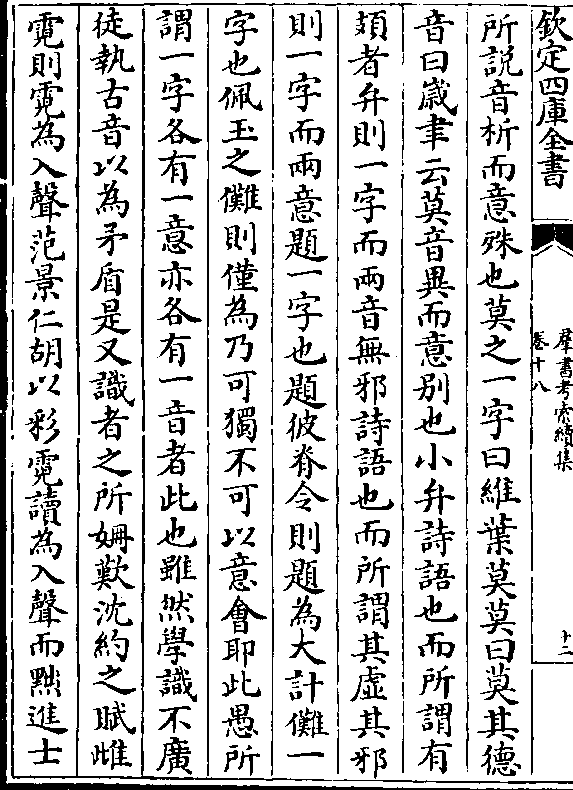 欽定四庫全書
羣書考索續集
卷十八
十二
所説音析而意殊也莫之一字曰維葉莫莫曰莫其德
音曰歳聿云莫音異而意别也小弁詩語也而所謂有
頍者弁則一字而兩音無邪詩語也而所謂其虛其邪
則一字而兩意題一字也題彼脊令則題為大計儺一
字也佩玉之儺則儺為乃可獨不可以意會耶此愚所
謂一字各有一意亦各有一音者此也雖然學識不廣
徒執古音以為矛盾是又識者之所姍歎沈約之賦雌
霓則霓為入聲范景仁胡以彩霓讀為入聲而黜進士